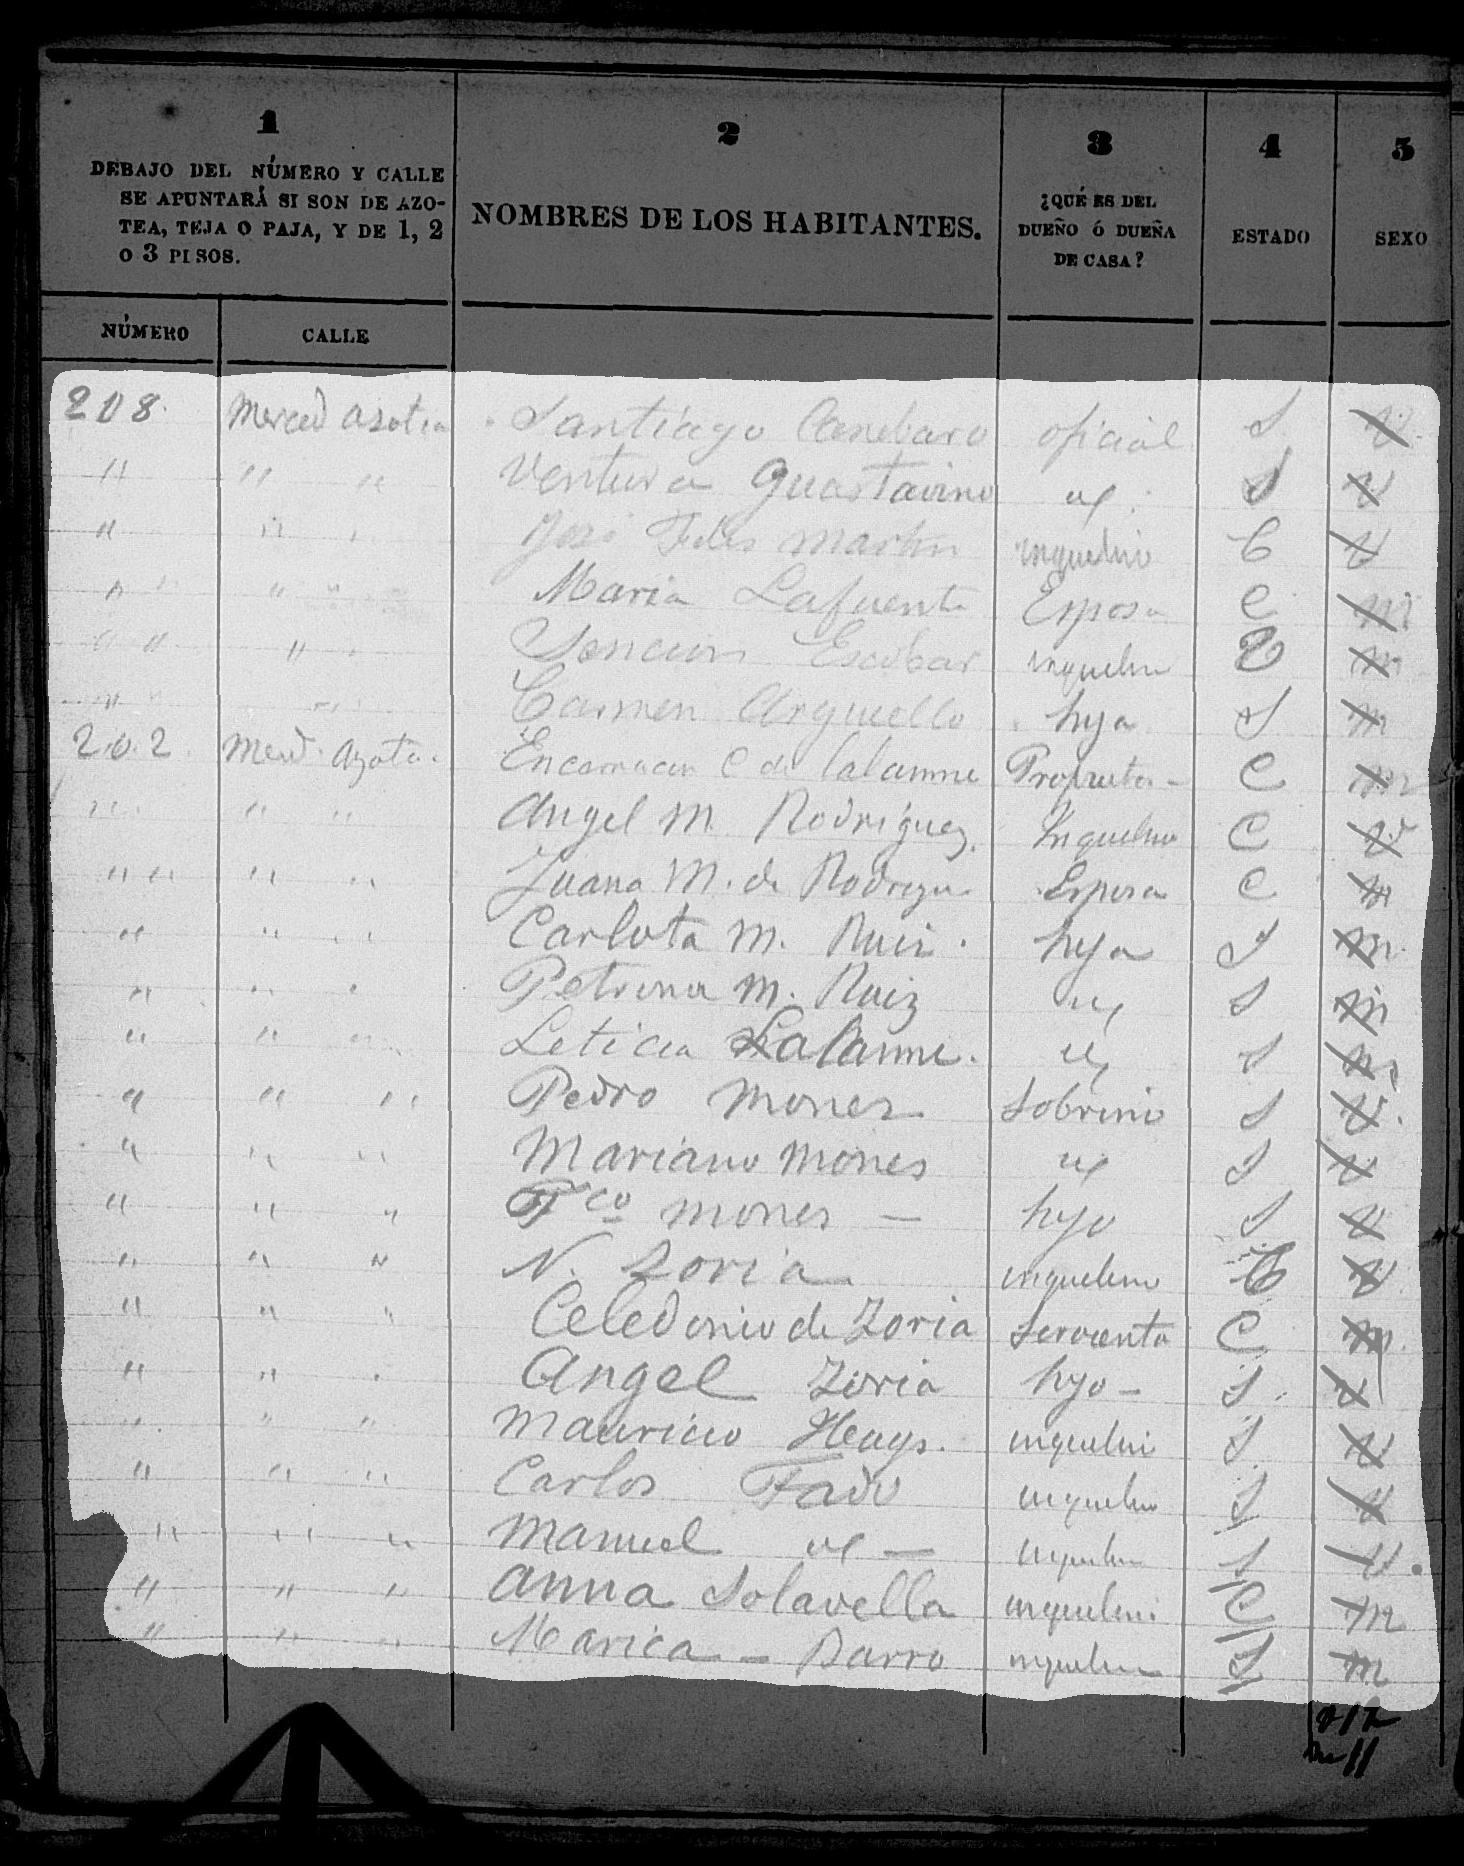 1 2 3 4 5
DEBAJO DEL NÚMERO Y CALLE
SE APUNTARÁ SI SON DE AZO-
TEA, TEJA O PAJA, Y DE 1, 2
O 3 PISOS.
NOMBRES DE LOS HABITANTES.
¿QUÉ ES DEL
DUEÑO Ó DUEÑA
DE CASA?
ESTADO
SEXO
NÚMERO CALLE
208 Merced azotea Santiago Canebaro oficial S V
" " " Ventura Guastavino S V
" " José Martin inquelino C V
" " " Maria Lafuente Esposa C m
" " " Escobar inquelino m
" " Carmen Arguello hija S m
202 Merd. azotea Encarnacion C de Lalanne Propieta- C m
" " " Angel M. Rodriguez Inquelino C V
" " " Juana M. de Rodrigu Esposa C m
" " " Carlota M. Ruiz hija S m
" " " Petrona M. Ruiz S m
" " " Leticia Lalanne S m
" " " Pedro Mones Sobrino S V
" " " Mariano Mones S V
" " " Fco Mones — hijo S V
" " " N. Zoria inquelino C V
" " " Celedonio de Zoria Servienta C m
" " " Angel Zoria hijo - S V
" " " Mauricio Heays. inquelino S V
" " " Carlos Fado inquelino S V
" " " Manuel — inquelino S V
" " " Anna Solavella inquelino C m
" " " Marica - Barro inquelino S m
V 12
m 11